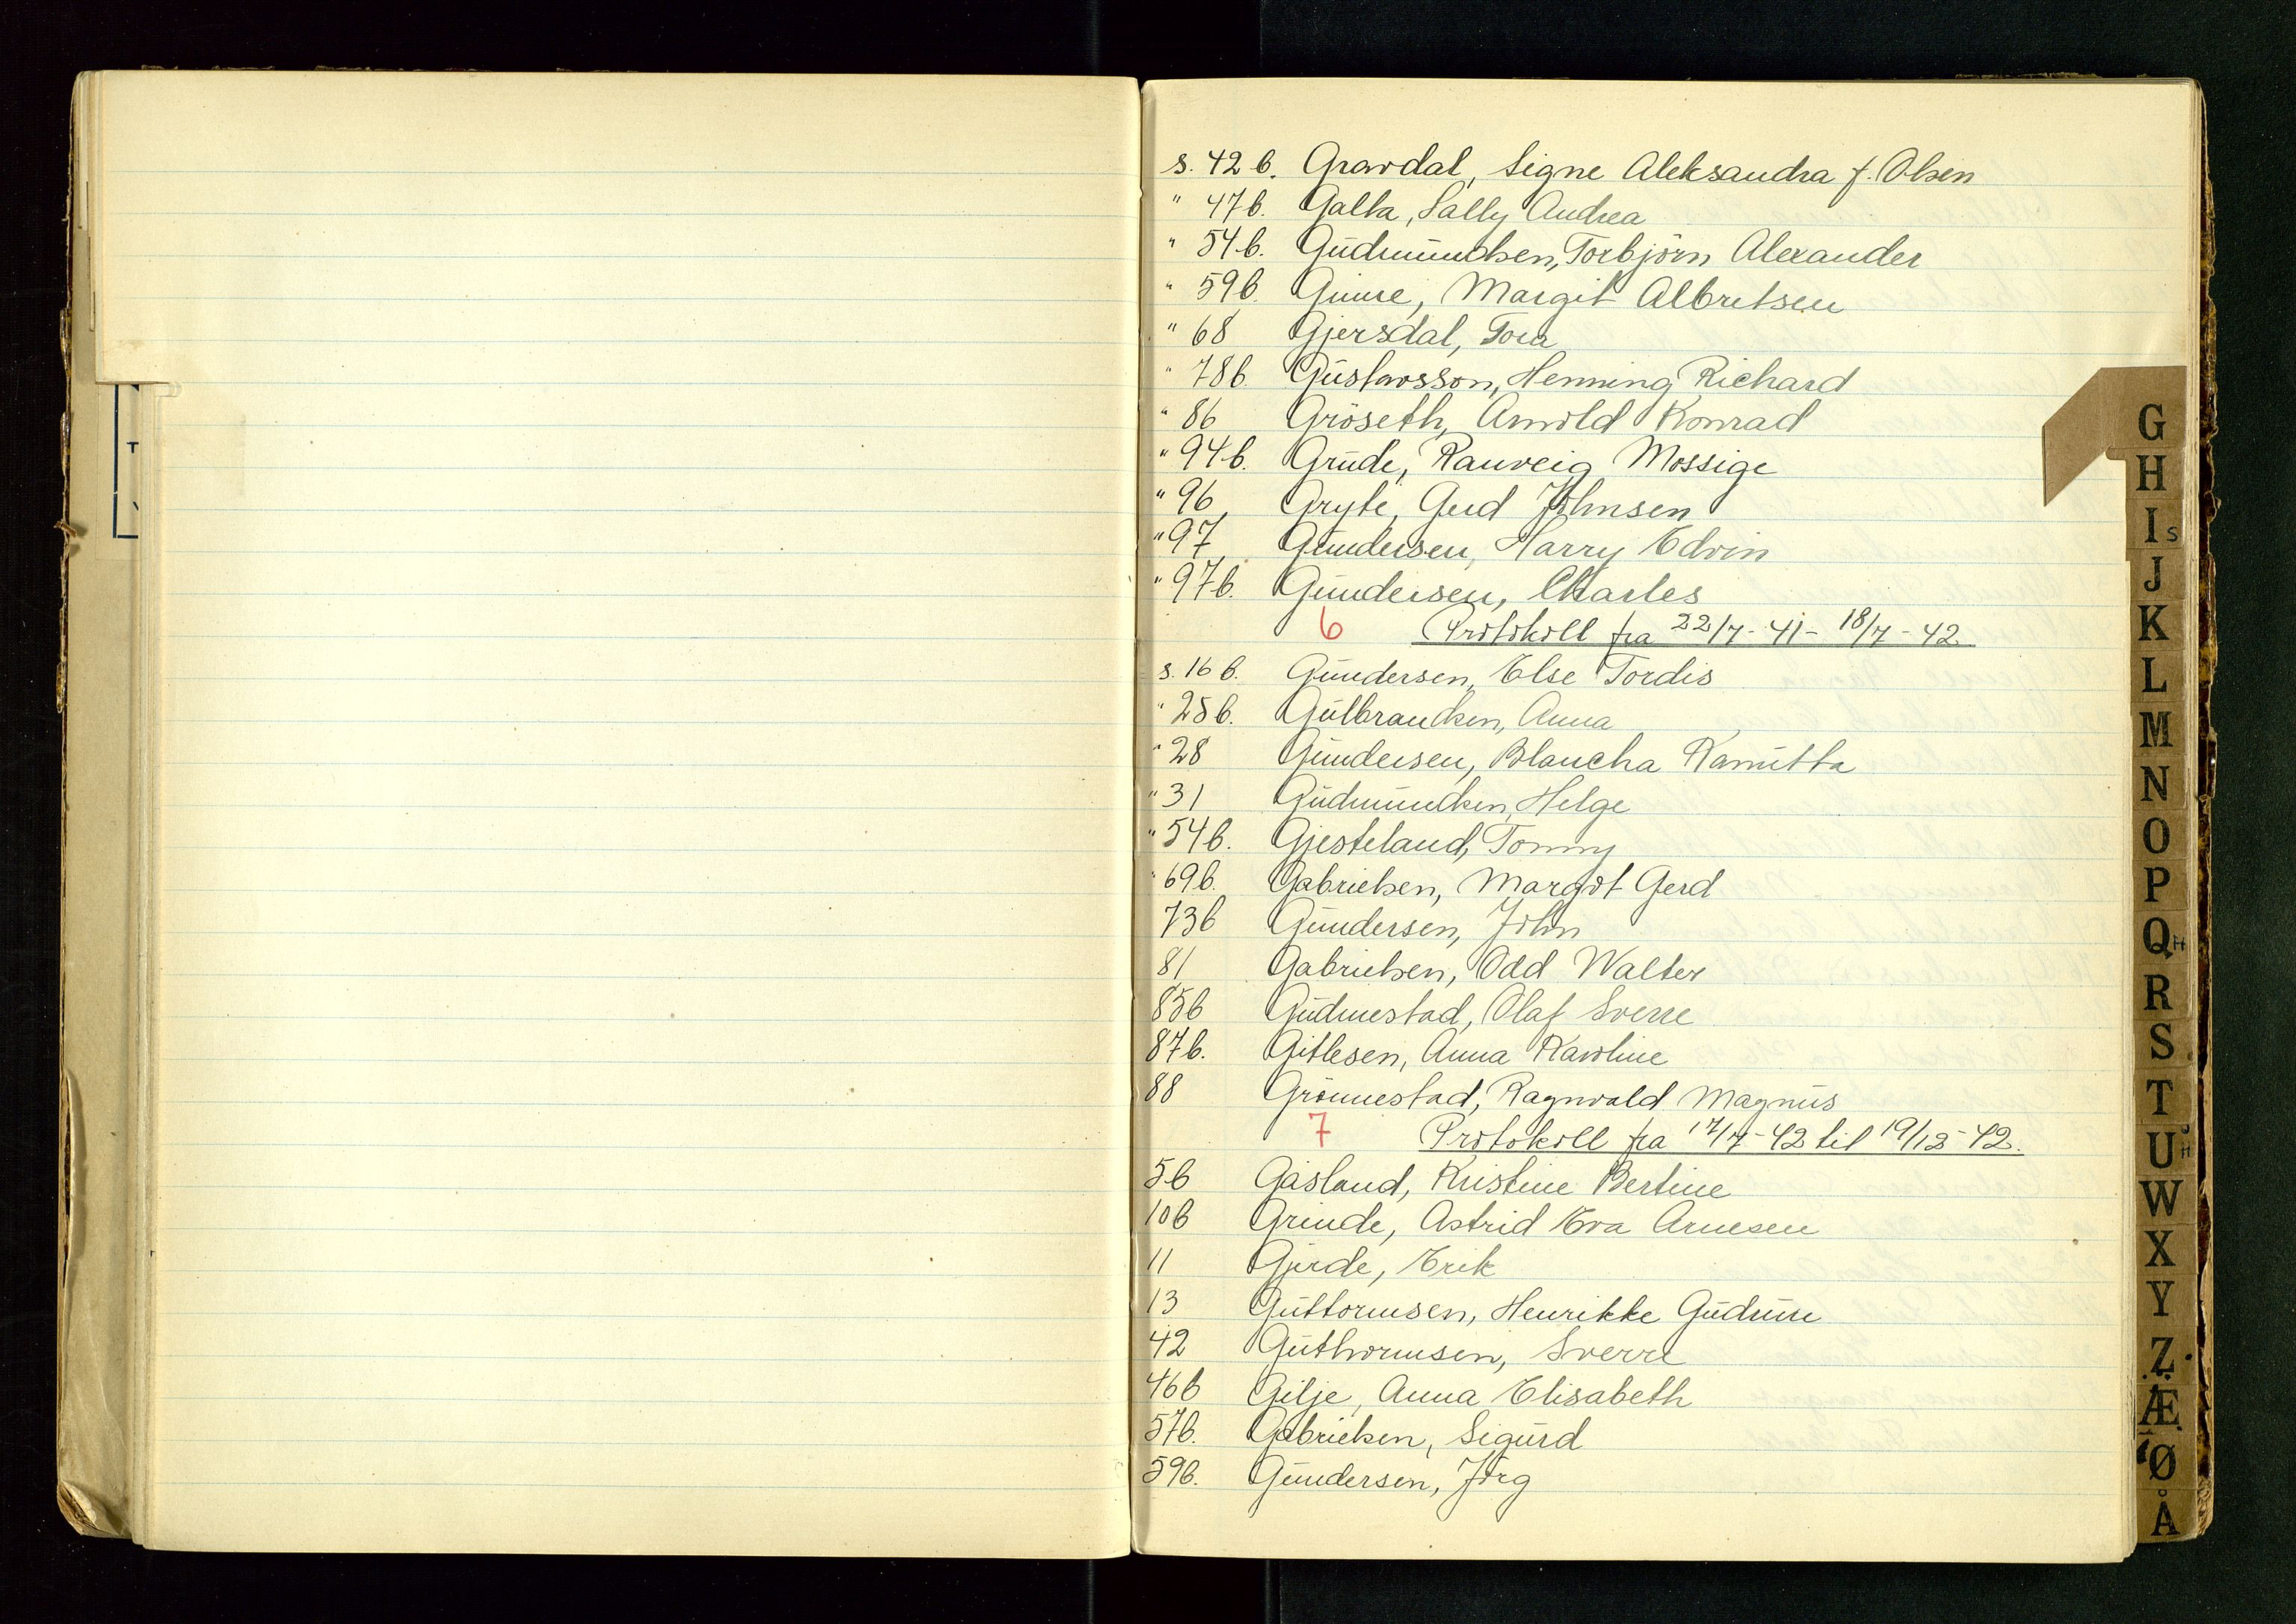 s. 42 b. Gravdal, Signe Aleksandra f. Olsen
" 47 b. Galta, Sally Andrea
" 54 b. Gudmundsen, Torbjörn Alexander
" 59 b. Gimre, Margit Albretsen
" 68 Gjersdal, Tom
" 78 b. Gustavsson, Henning Richard
" 86 Gröseth, Arnold Konrad
" 94 b. Grude, Ranveig Mossige
" 96 Gryte, Gerd Johnsen
" 97 Gundersen, Harry Edvin
" 97 b. Gundersen, Charles
6 Protokoll fra 22/7-41 - 18/7-42
s. 16 b. Gundersen, Else Tordis
" 25 b. Gulbrandsen, Anna
" 28 Gundersen, Blancha Kamitta
" 31 Gudmundsen, Helge
" 54 b. Gjesteland, Tonny
" 69 b. Gabrielsen, Margot Gerd
73 b Gundersen, John
81 Gabrielsen, Odd Walter
85 b Gudmestad, Olaf Sverre
87 b. Gitlesen, Anna Karoline
88 Grönnestad, Ragnvald Magnus
7 Protokoll fra 17/7-42 til 19/12-42.
5 b Gåsland, Kristine Bertine
10 b Grinde, Astrid Eva Arnesen
11 Gjerde, Erik
13 Guttormsen, Henrikke Gudrun
42 Guthormsen, Sverre
46 b Gilje, Anna Elisabeth
57 b. Gabrielsen, Sigurd
59 b. Gundersen, Jörg
G
H
I s
J
K
L
M
N
O
P
Q H
R
S
T
U H
W
X
Y
Z
Æ
Ø
Å